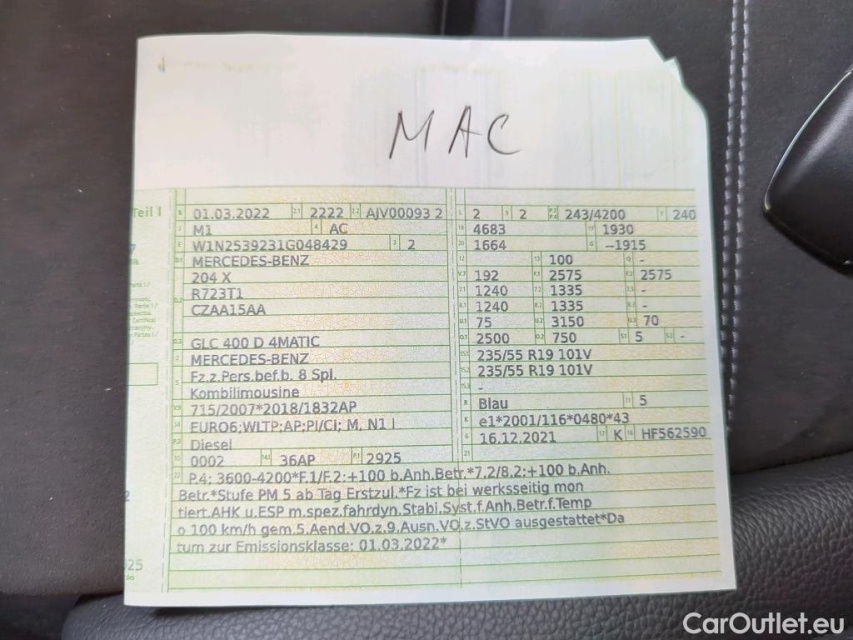 MAC
Teil I
01.03.2022 2222 AJV00093 2
M1 AC
W1N2539231G048429 2
MERCEDES-BENZ
204 X
R723T1
CZAA15AA
GLC 400 D 4MATIC
MERCEDES-BENZ
Fz.z.Pers.bef.b. 8 Spl.
Kombilimousine
715/2007*2018/1832AP
EURO6;WLTP;AP;PI/CI; M, N1 I
Diesel
0002 36AP 2925
2 2 243/4200 240
4683 1930
1664 --1915
100 -
192 2575 2575
1240 1335 -
1240 1335 -
75 3150 70
2500 750 5 -
235/55 R19 101V
235/55 R19 101V
-
Blau 5
e1*2001/116*0480*43
16.12.2021 K HF562590
P.4: 3600-4200*F.1/F.2:+100 b.Anh.Betr.*7.2/8.2:+100 b.Anh.
Betr.*Stufe PM 5 ab Tag Erstzul.*Fz ist bei werksseitig mon
tiert.AHK u.ESP m.spez.fahrdyn.Stabi.Syst.f.Anh.Betr.f.Temp
o 100 km/h gem.5.Aend.VO.z.9.Ausn.VO.z.StVO ausgestattet*Da
tum zur Emissionsklasse: 01.03.2022*
CarOutlet.eu